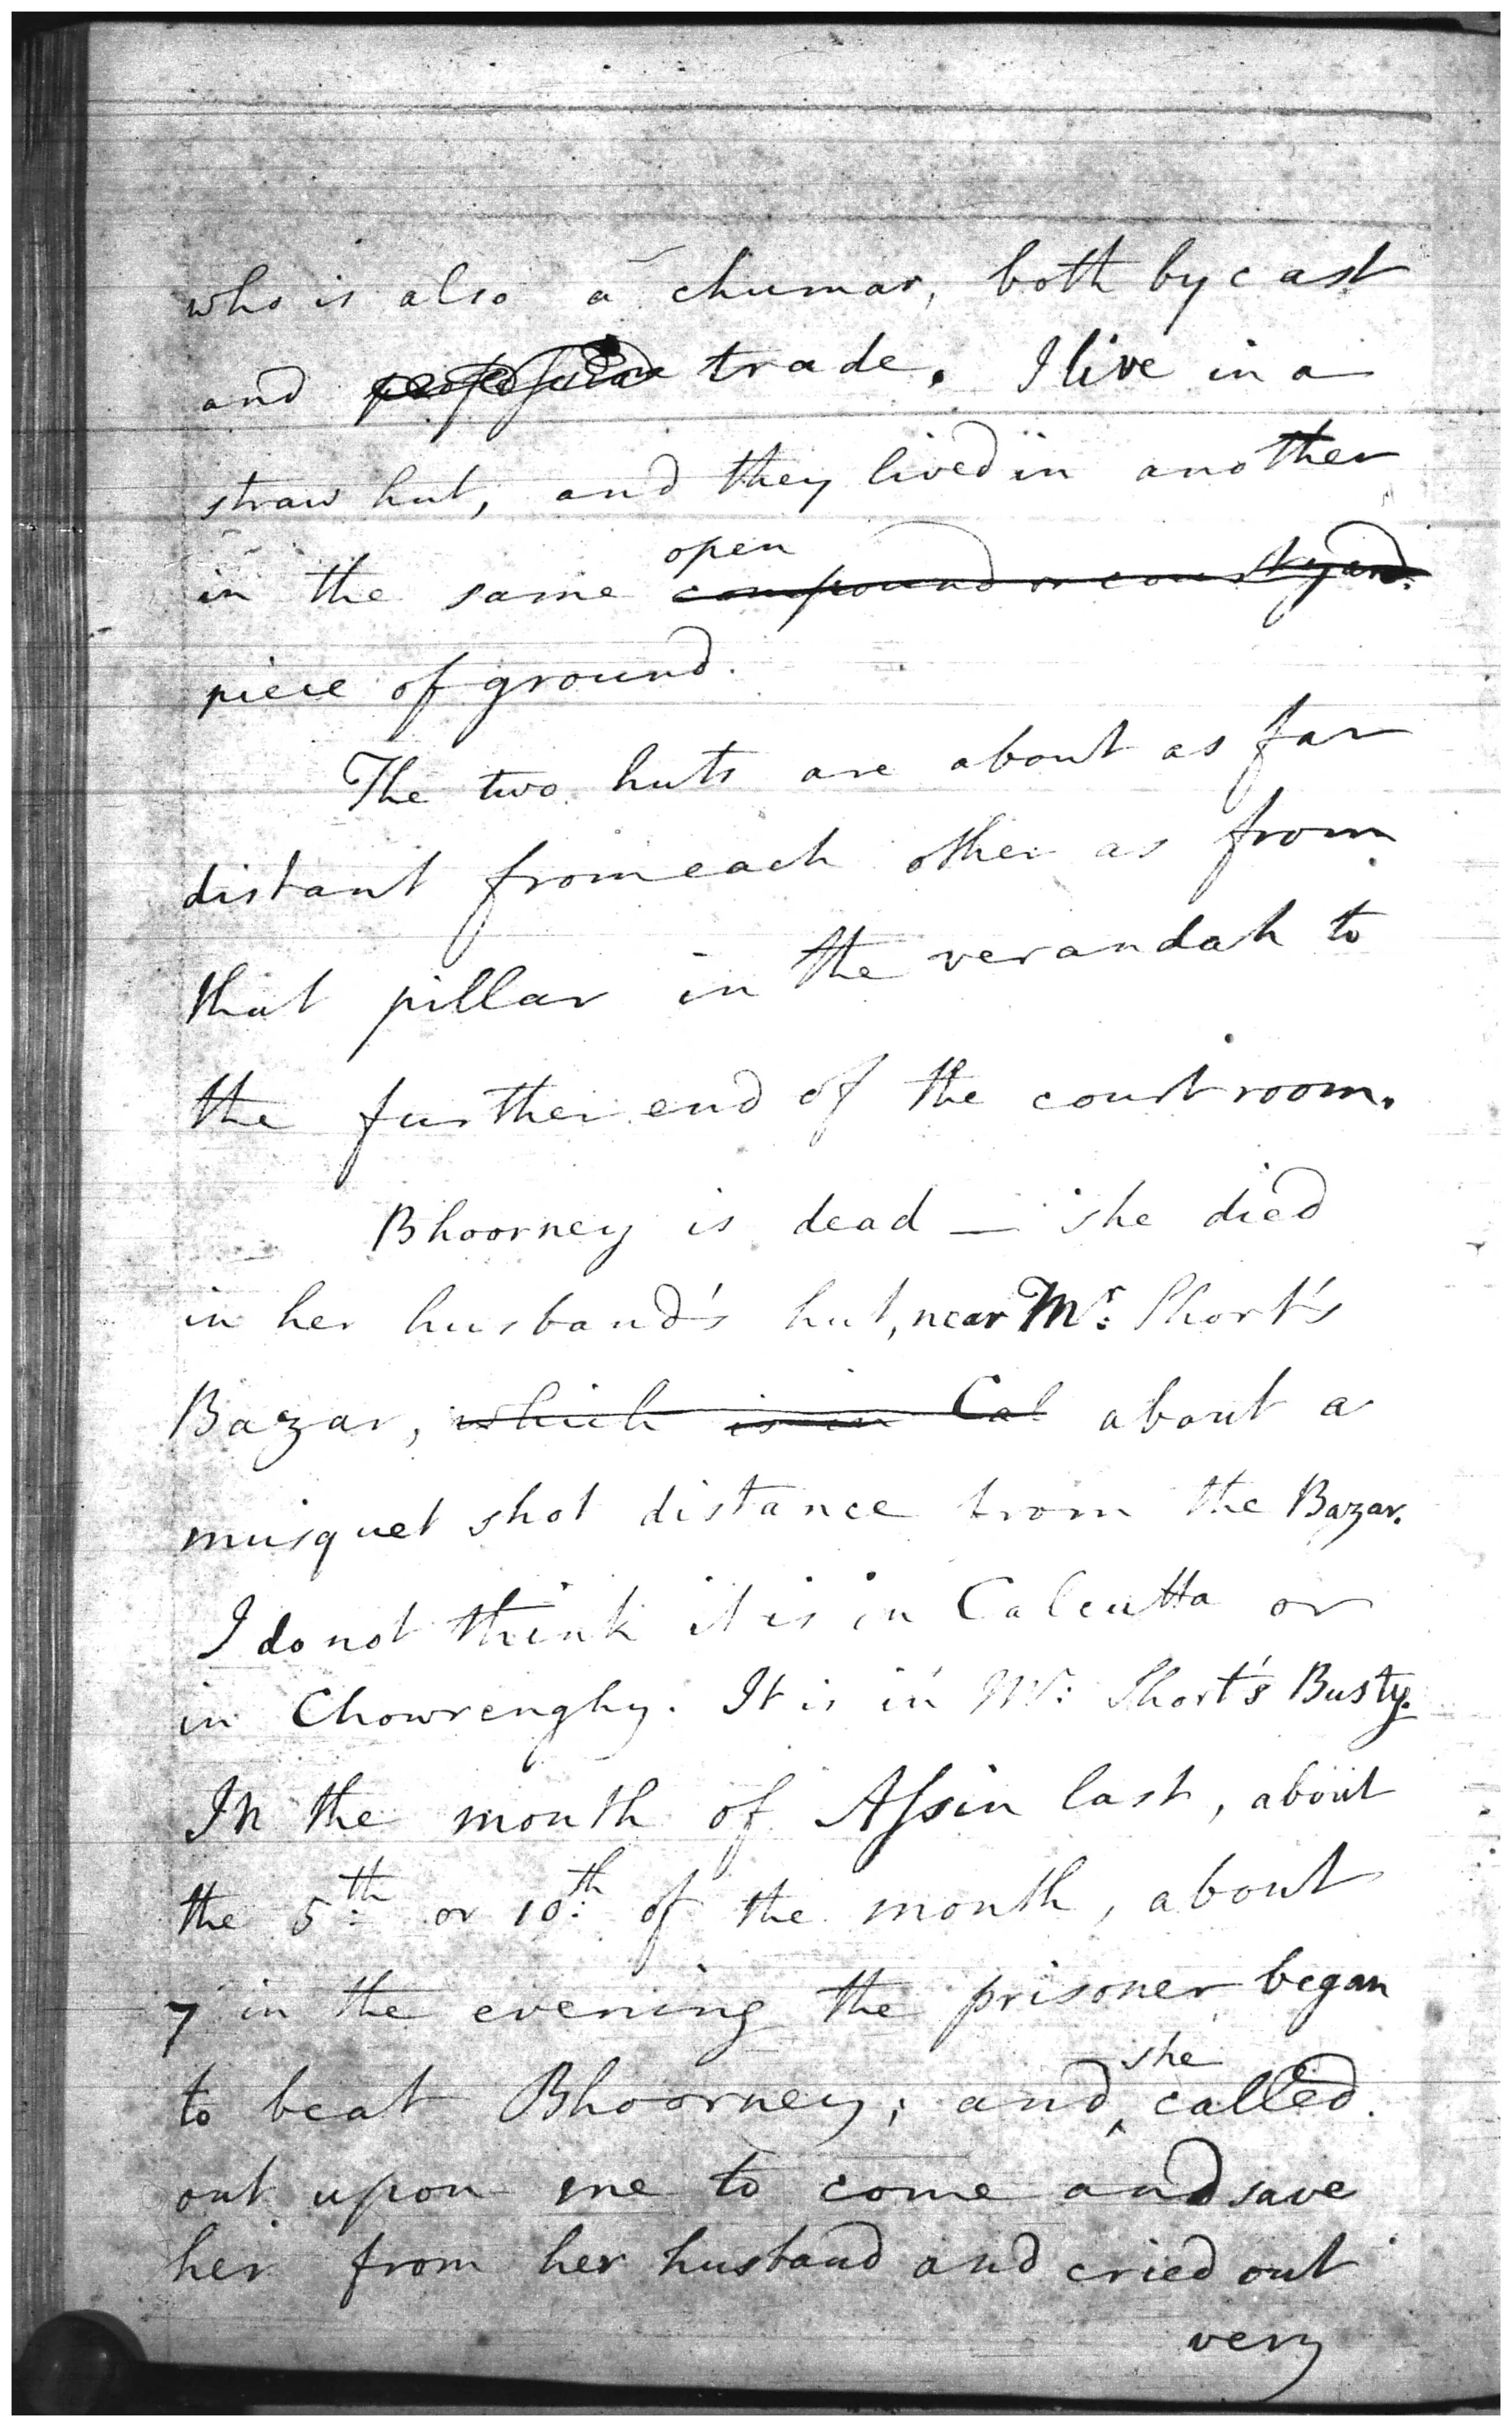 who is also a chumar, both by cast
and profession trade. I live in a
straw hut, and they lived in another
open
in the same compound or courtyard.
piece of ground.
The two huts are about as far
distant from each other as from
that pillar in the verandah to
the further end of the court room.
Bhoorney is dead — she died
in her husband's hut, near Mr: Short's
Bazar, which is in Cal about a
musquet shot distance from the Bazar.
I do not think it is in Calcutta or
in Chowrenghy. It is in Mr: Short's Busty.
In the month of Aſsin last, about
the 5th: or 10th: of the month, about
7 in the evening the prisoner began
she
to beat Bhoorney; and ‸ called
out upon me to come and save
her from her husband and cried out
very